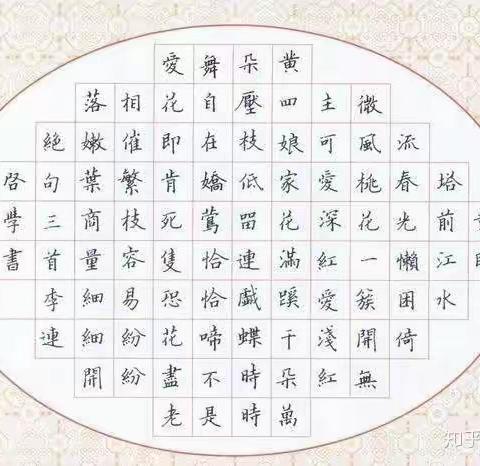 塔前江水
流春光懶困倚
微風桃花一簇開無
主可愛深紅愛淺紅
黄四娘家花滿蹊千朵萬
朵壓枝低留連戲蝶時時
舞自在嬌鶯恰恰啼不是
愛花即肯死隻恐花盡老
相催繁枝容易紛紛
落嫩葉商量細細開
絕句三首李連
啓學書
知乎